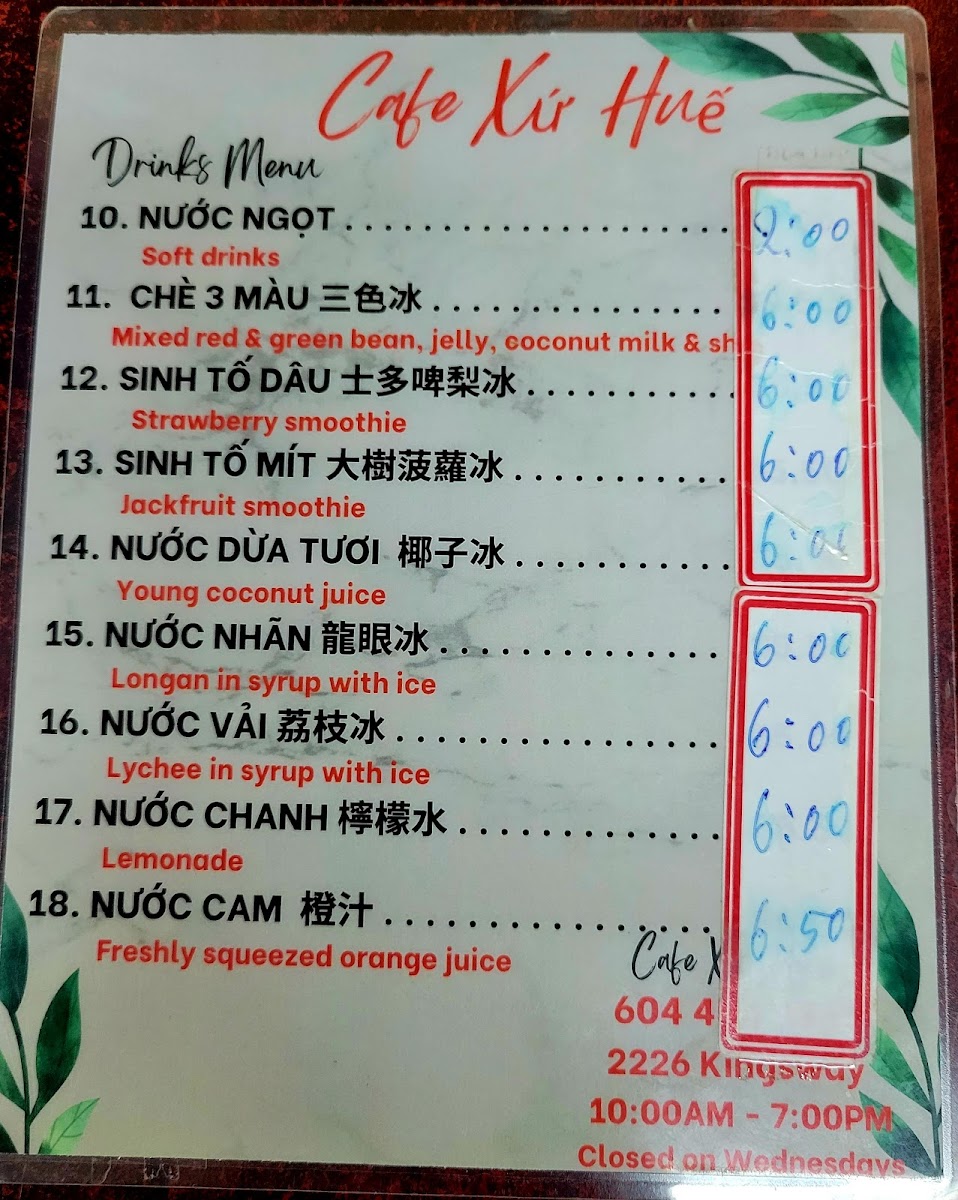 Cafe Xứ Huế
Drinks Menu
10. NƯỚC NGỌT . . . . . . . . . . . . . . . . . . . . 2:00
Soft drinks
11. CHÈ 3 MÀU 三色冰 . . . . . . . . . . . . . . . 6:00
Mixed red & green bean, jelly, coconut milk & sh
12. SINH TỐ DÂU 士多啤梨冰 . . . . . . . . . . . 6:00
Strawberry smoothie
13. SINH TỐ MÍT 大樹菠蘿冰 . . . . . . . . . . . 6:00
Jackfruit smoothie
14. NƯỚC DỪA TƯƠI 椰子冰 . . . . . . . . . . . 6:00
Young coconut juice
15. NƯỚC NHÃN 龍眼冰 . . . . . . . . . . . . . . 6:00
Longan in syrup with ice
16. NƯỚC VẢI 荔枝冰 . . . . . . . . . . . . . . . . 6:00
Lychee in syrup with ice
17. NƯỚC CHANH 檸檬水 . . . . . . . . . . . . . 6:00
Lemonade
18. NƯỚC CAM 橙汁 . . . . . . . . . . . . . . . . 6:50
Freshly squeezed orange juice
Cafe X
604 4
2226 Kingsway
10:00AM - 7:00PM
Closed on Wednesdays